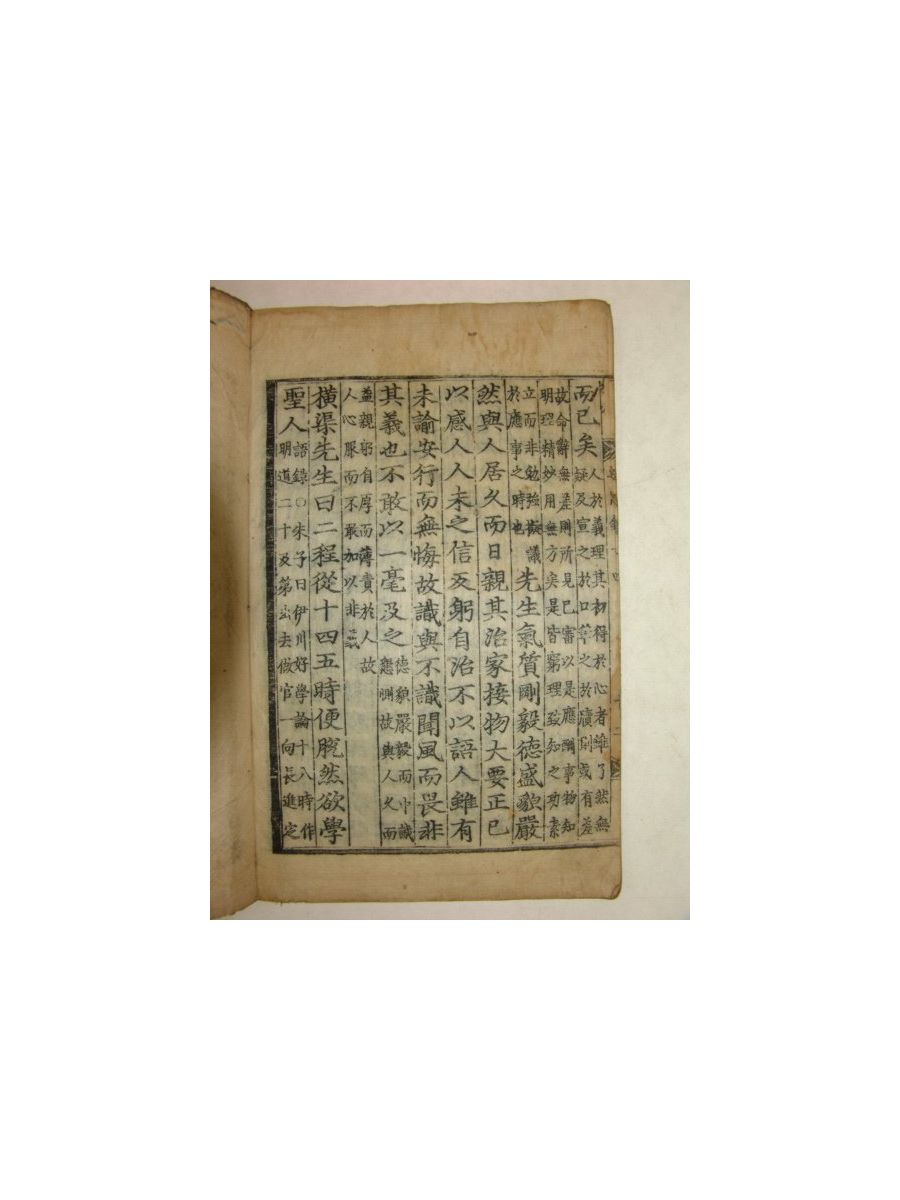 而已矣人於義理其初得於心者雖了然無
疑及宣之於口筆之於牘則或有差
故命辭無差則所見已審以是應酬事物知
明理精妙用無方矣是皆窮理致知之功素
立而非勉強擬議
於應事之時也先生氣質剛毅德盛貌嚴
然與人居久而日親其治家接物大要正已
以感人人未之信反躬自治不以語人雖有
未諭安行而無悔故識與不識聞風而畏非
其義也不敢以一毫及之德貌嚴毅而中誠
懇惻故與人久而
益親躬自厚而薄責於人故
人心服而不敢加以非義
橫渠先生曰二程從十四五時便脫然欲學
聖人語錄○朱子曰伊川好學論十八時作
明道二十及第出去做官一向長進定